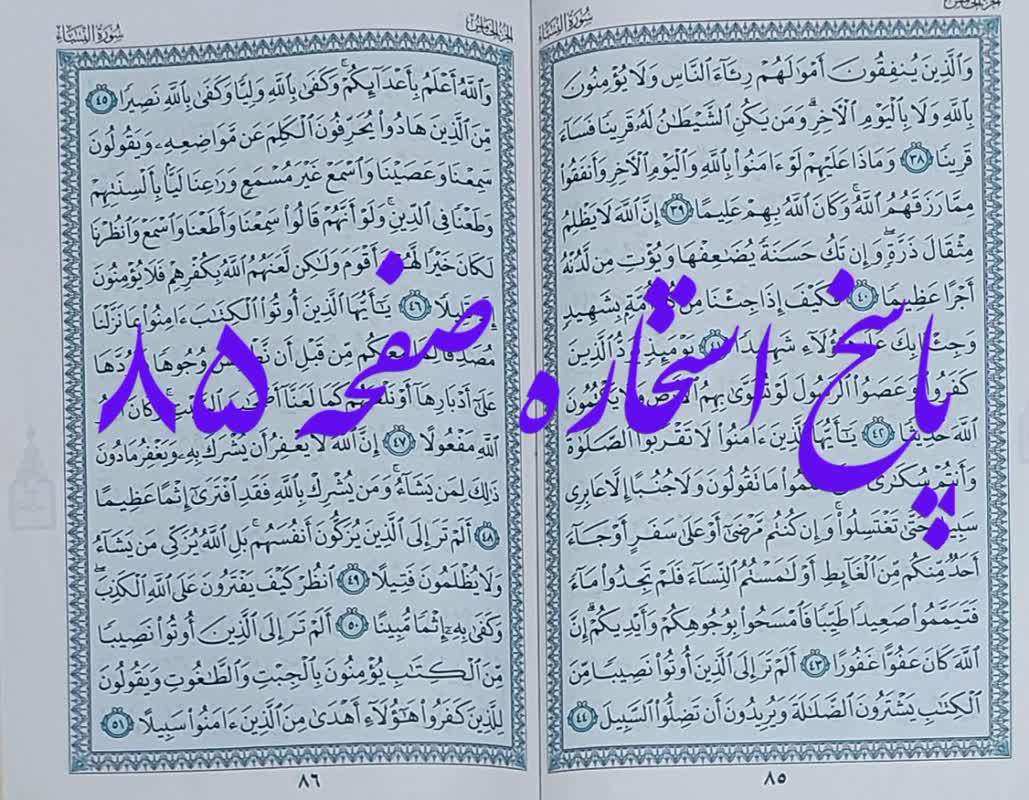 الجزء الخامس
سورة النساء
وَالَّذِينَ يُنفِقُونَ أَمْوَٰلَهُمْ رِئَآءَ ٱلنَّاسِ وَلَا يُؤْمِنُونَ
بِٱللَّهِ وَلَا بِٱلْيَوْمِ ٱلْأَخِرِ وَمَن يَكُنِ ٱلشَّيْطَٰنُ لَهُۥ قَرِينًا فَسَآءَ
قَرِينًا ٣٨ وَمَاذَا عَلَيْهِمْ لَوْ ءَامَنُوا۟ بِٱللَّهِ وَٱلْيَوْمِ ٱلْأَخِرِ وَأَنفَقُوا۟
مِمَّا رَزَقَهُمُ ٱللَّهُ وَكَانَ ٱللَّهُ بِهِمْ عَلِيمًا ٣٩ إِنَّ ٱللَّهَ لَا يَظْلِمُ
مِثْقَالَ ذَرَّةٍ وَإِن تَكُ حَسَنَةً يُضَٰعِفْهَا وَيُؤْتِ مِن لَّدُنْهُ
أَجْرًا عَظِيمًا ٤٠ فَكَيْفَ إِذَا جِئْنَا مِن كُلِّ أُمَّةٍ بِشَهِيدٍ
وَجِئْنَا بِكَ عَلَىٰ هَٰٓؤُلَآءِ شَهِيدًا ٤١ يَوْمَئِذٍ يَوَدُّ ٱلَّذِينَ
كَفَرُوا۟ وَعَصَوُا۟ ٱلرَّسُولَ لَوْ تُسَوَّىٰ بِهِمُ ٱلْأَرْضُ وَلَا يَكْتُمُونَ
ٱللَّهَ حَدِيثًا ٤٢ يَٰٓأَيُّهَا ٱلَّذِينَ ءَامَنُوا۟ لَا تَقْرَبُوا۟ ٱلصَّلَوٰةَ
وَأَنتُمْ سُكَٰرَىٰ حَتَّىٰ تَعْلَمُوا۟ مَا تَقُولُونَ وَلَا جُنُبًا إِلَّا عَابِرِى
سَبِيلٍ حَتَّىٰ تَغْتَسِلُوا۟ وَإِن كُنتُم مَّرْضَىٰٓ أَوْ عَلَىٰ سَفَرٍ أَوْ جَآءَ
أَحَدٌ مِّنكُم مِّنَ ٱلْغَآئِطِ أَوْ لَٰمَسْتُمُ ٱلنِّسَآءَ فَلَمْ تَجِدُوا۟ مَآءً
فَتَيَمَّمُوا۟ صَعِيدًا طَيِّبًا فَٱمْسَحُوا۟ بِوُجُوهِكُمْ وَأَيْدِيكُمْ إِنَّ
ٱللَّهَ كَانَ عَفُوًّا غَفُورًا ٤٣ أَلَمْ تَرَ إِلَى ٱلَّذِينَ أُوتُوا۟ نَصِيبًا مِّنَ
ٱلْكِتَٰبِ يَشْتَرُونَ ٱلضَّلَٰلَةَ وَيُرِيدُونَ أَن تَضِلُّوا۟ ٱلسَّبِيلَ ٤٤
٨٥
الجزء الخامس
سورة النساء
وَٱللَّهُ أَعْلَمُ بِأَعْدَآئِكُمْ وَكَفَىٰ بِٱللَّهِ وَلِيًّا وَكَفَىٰ بِٱللَّهِ نَصِيرًا ٤٥
مِّنَ ٱلَّذِينَ هَادُوا۟ يُحَرِّفُونَ ٱلْكَلِمَ عَن مَّوَاضِعِهِۦ وَيَقُولُونَ
سَمِعْنَا وَعَصَيْنَا وَٱسْمَعْ غَيْرَ مُسْمَعٍ وَرَٰعِنَا لَيًّۢا بِأَلْسِنَتِهِمْ
وَطَعْنًا فِى ٱلدِّينِ وَلَوْ أَنَّهُمْ قَالُوا۟ سَمِعْنَا وَأَطَعْنَا وَٱسْمَعْ وَٱنظُرْنَا
لَكَانَ خَيْرًا لَّهُمْ وَأَقْوَمَ وَلَٰكِن لَّعَنَهُمُ ٱللَّهُ بِكُفْرِهِمْ فَلَا يُؤْمِنُونَ
إِلَّا قَلِيلًا ٤٦ يَٰٓأَيُّهَا ٱلَّذِينَ أُوتُوا۟ ٱلْكِتَٰبَ ءَامِنُوا۟ بِمَا نَزَّلْنَا
مُصَدِّقًا لِّمَا مَعَكُم مِّن قَبْلِ أَن نَّطْمِسَ وُجُوهًا فَنَرُدَّهَا
عَلَىٰٓ أَدْبَارِهَآ أَوْ نَلْعَنَهُمْ كَمَا لَعَنَّآ أَصْحَٰبَ ٱلسَّبْتِ وَكَانَ أَمْرُ
ٱللَّهِ مَفْعُولًا ٤٧ إِنَّ ٱللَّهَ لَا يَغْفِرُ أَن يُشْرَكَ بِهِۦ وَيَغْفِرُ مَا دُونَ
ذَٰلِكَ لِمَن يَشَآءُ وَمَن يُشْرِكْ بِٱللَّهِ فَقَدِ ٱفْتَرَىٰٓ إِثْمًا عَظِيمًا
٤٨ أَلَمْ تَرَ إِلَى ٱلَّذِينَ يُزَكُّونَ أَنفُسَهُم بَلِ ٱللَّهُ يُزَكِّى مَن يَشَآءُ
وَلَا يُظْلَمُونَ فَتِيلًا ٤٩ ٱنظُرْ كَيْفَ يَفْتَرُونَ عَلَى ٱللَّهِ ٱلْكَذِبَ
وَكَفَىٰ بِهِۦٓ إِثْمًا مُّبِينًا ٥٠ أَلَمْ تَرَ إِلَى ٱلَّذِينَ أُوتُوا۟ نَصِيبًا
مِّنَ ٱلْكِتَٰبِ يُؤْمِنُونَ بِٱلْجِبْتِ وَٱلطَّٰغُوتِ وَيَقُولُونَ
لِلَّذِينَ كَفَرُوا۟ هَٰٓؤُلَآءِ أَهْدَىٰ مِنَ ٱلَّذِينَ ءَامَنُوا۟ سَبِيلًا ٥١
٨٦
پاسخ استخاره صفحه ۸۵